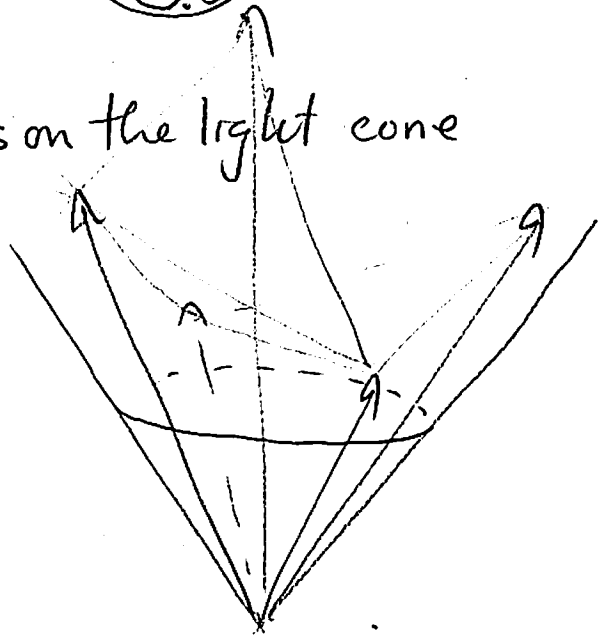 s on the light cone